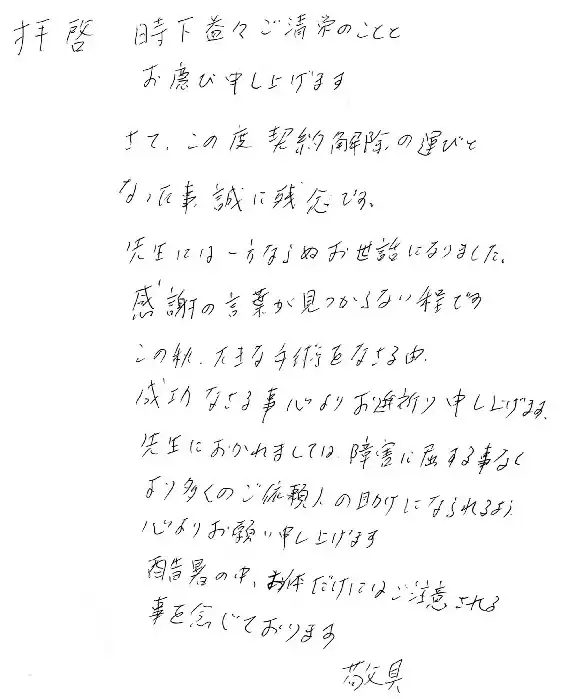 拝啓 時下益々ご清栄のことと
お慶び申し上げます
さて、この度契約解除の運びと
なった事、誠に残念です。
先生には一方ならぬお世話になりました。
感謝の言葉が見つからない程です
この秋、大きな手術をなさる由、
成功なさる事心よりお祈り申し上げます。
先生におかれましては、障害に屈する事なく
より多くのご依頼人の助けになられるよう
心よりお願い申し上げます
酷暑の中、お体だけにはご注意される
事を念じております
敬具